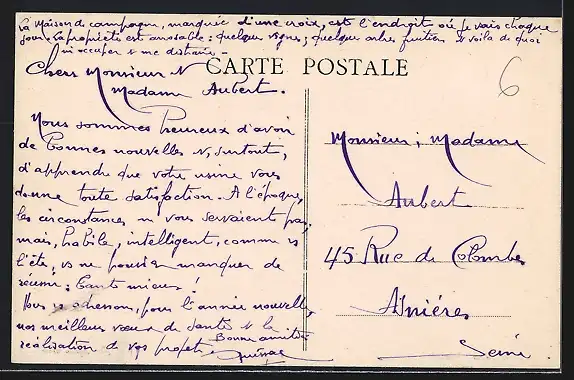 La Maison de campagne, marquée d'une croix, est l'endroit où je vais chaque
jour. La propriété est arrosable : quelques vignes, quelques arbres fruitiers & voilà de quoi
m'occuper & me distraire -
CARTE POSTALE
6
Chers Monsieur &
Madame Aubert.
Nous sommes heureux d'avoir
de bonnes nouvelles &, surtout,
d'apprendre que votre usine vous
donne toute satisfaction. A l'époque,
les circonstances ne vous servaient pas;
mais, habile, intelligent, comme vs
l'êtes, vs ne pouviez manquer de
réussir; tant mieux !
Nous vs adressons, pour l'année nouvelle,
nos meilleurs vœux de santé & la
réalisation de vos projets. Bonne amitié
Monsieur & Madame
Aubert
45 Rue de Colombes
Asnières
Seine